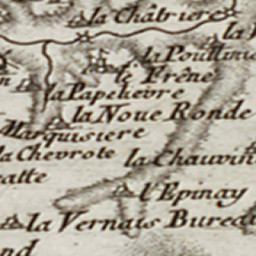 la Châtriere
la Poullinie
le Frêne
la Papelievre
la Noue Ronde
Marquisiere
la Chevrote
la Chauvin
atte
l'Epinay
la Vernais Bured
nd